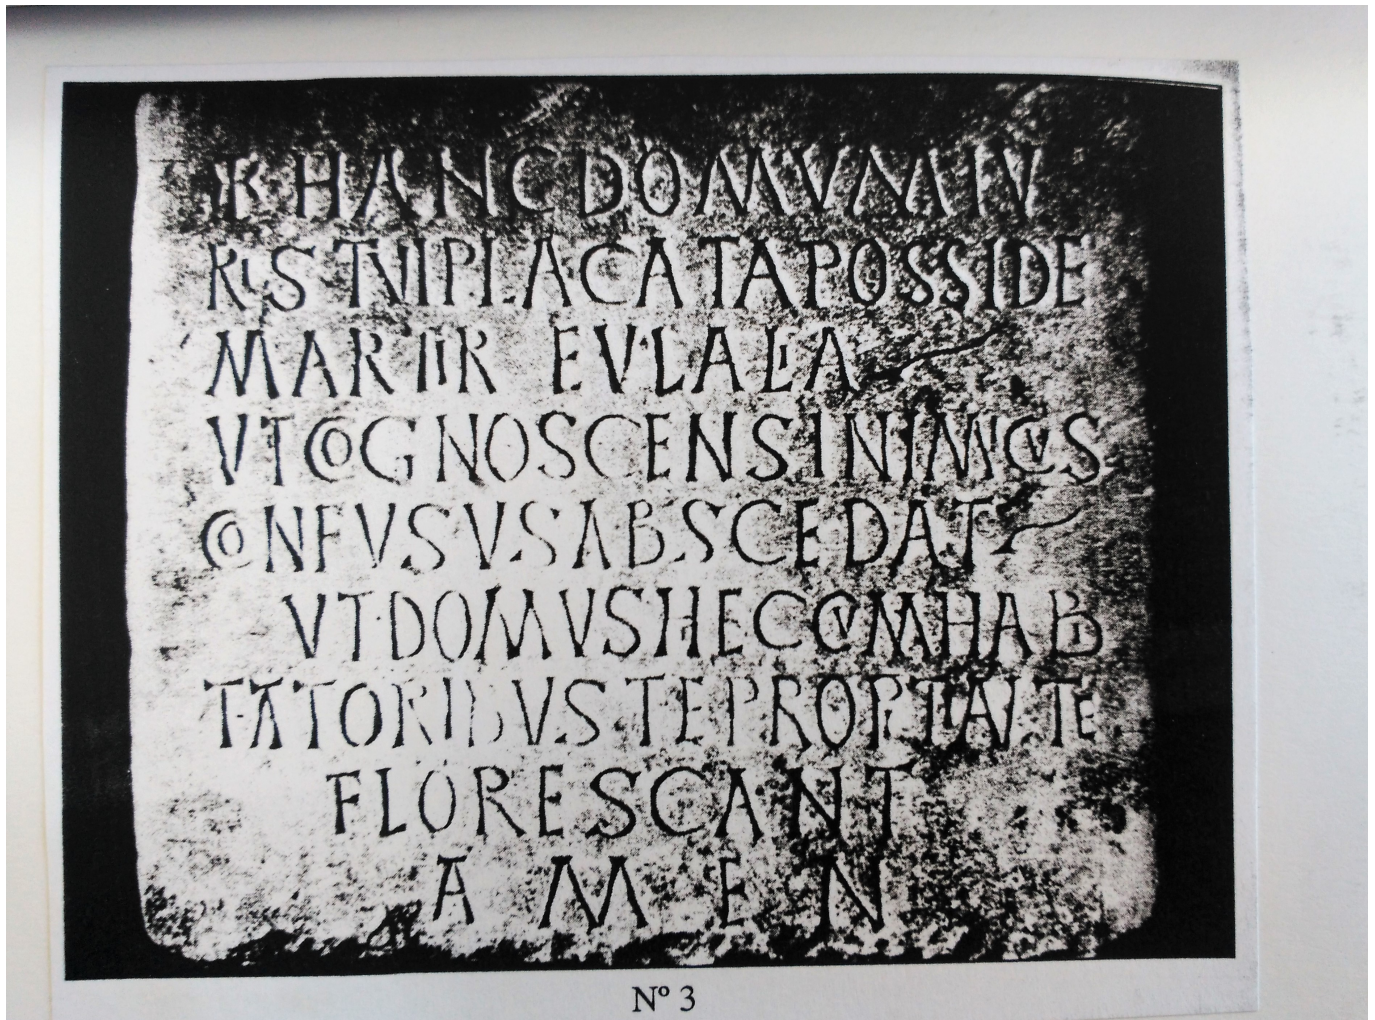 ⳩ HANC DOMVM IV
RIS TVI PLACATA POSSIDE
MARTIR EVLALIA
VT COGNOSCENS INIMICVS
CONFVSVS ABSCEDAT
VT DOMVS HEC CVM HABI
TATORIBVS TE PROPITIANTE
FLORESCANT
AMEN
Nº 3